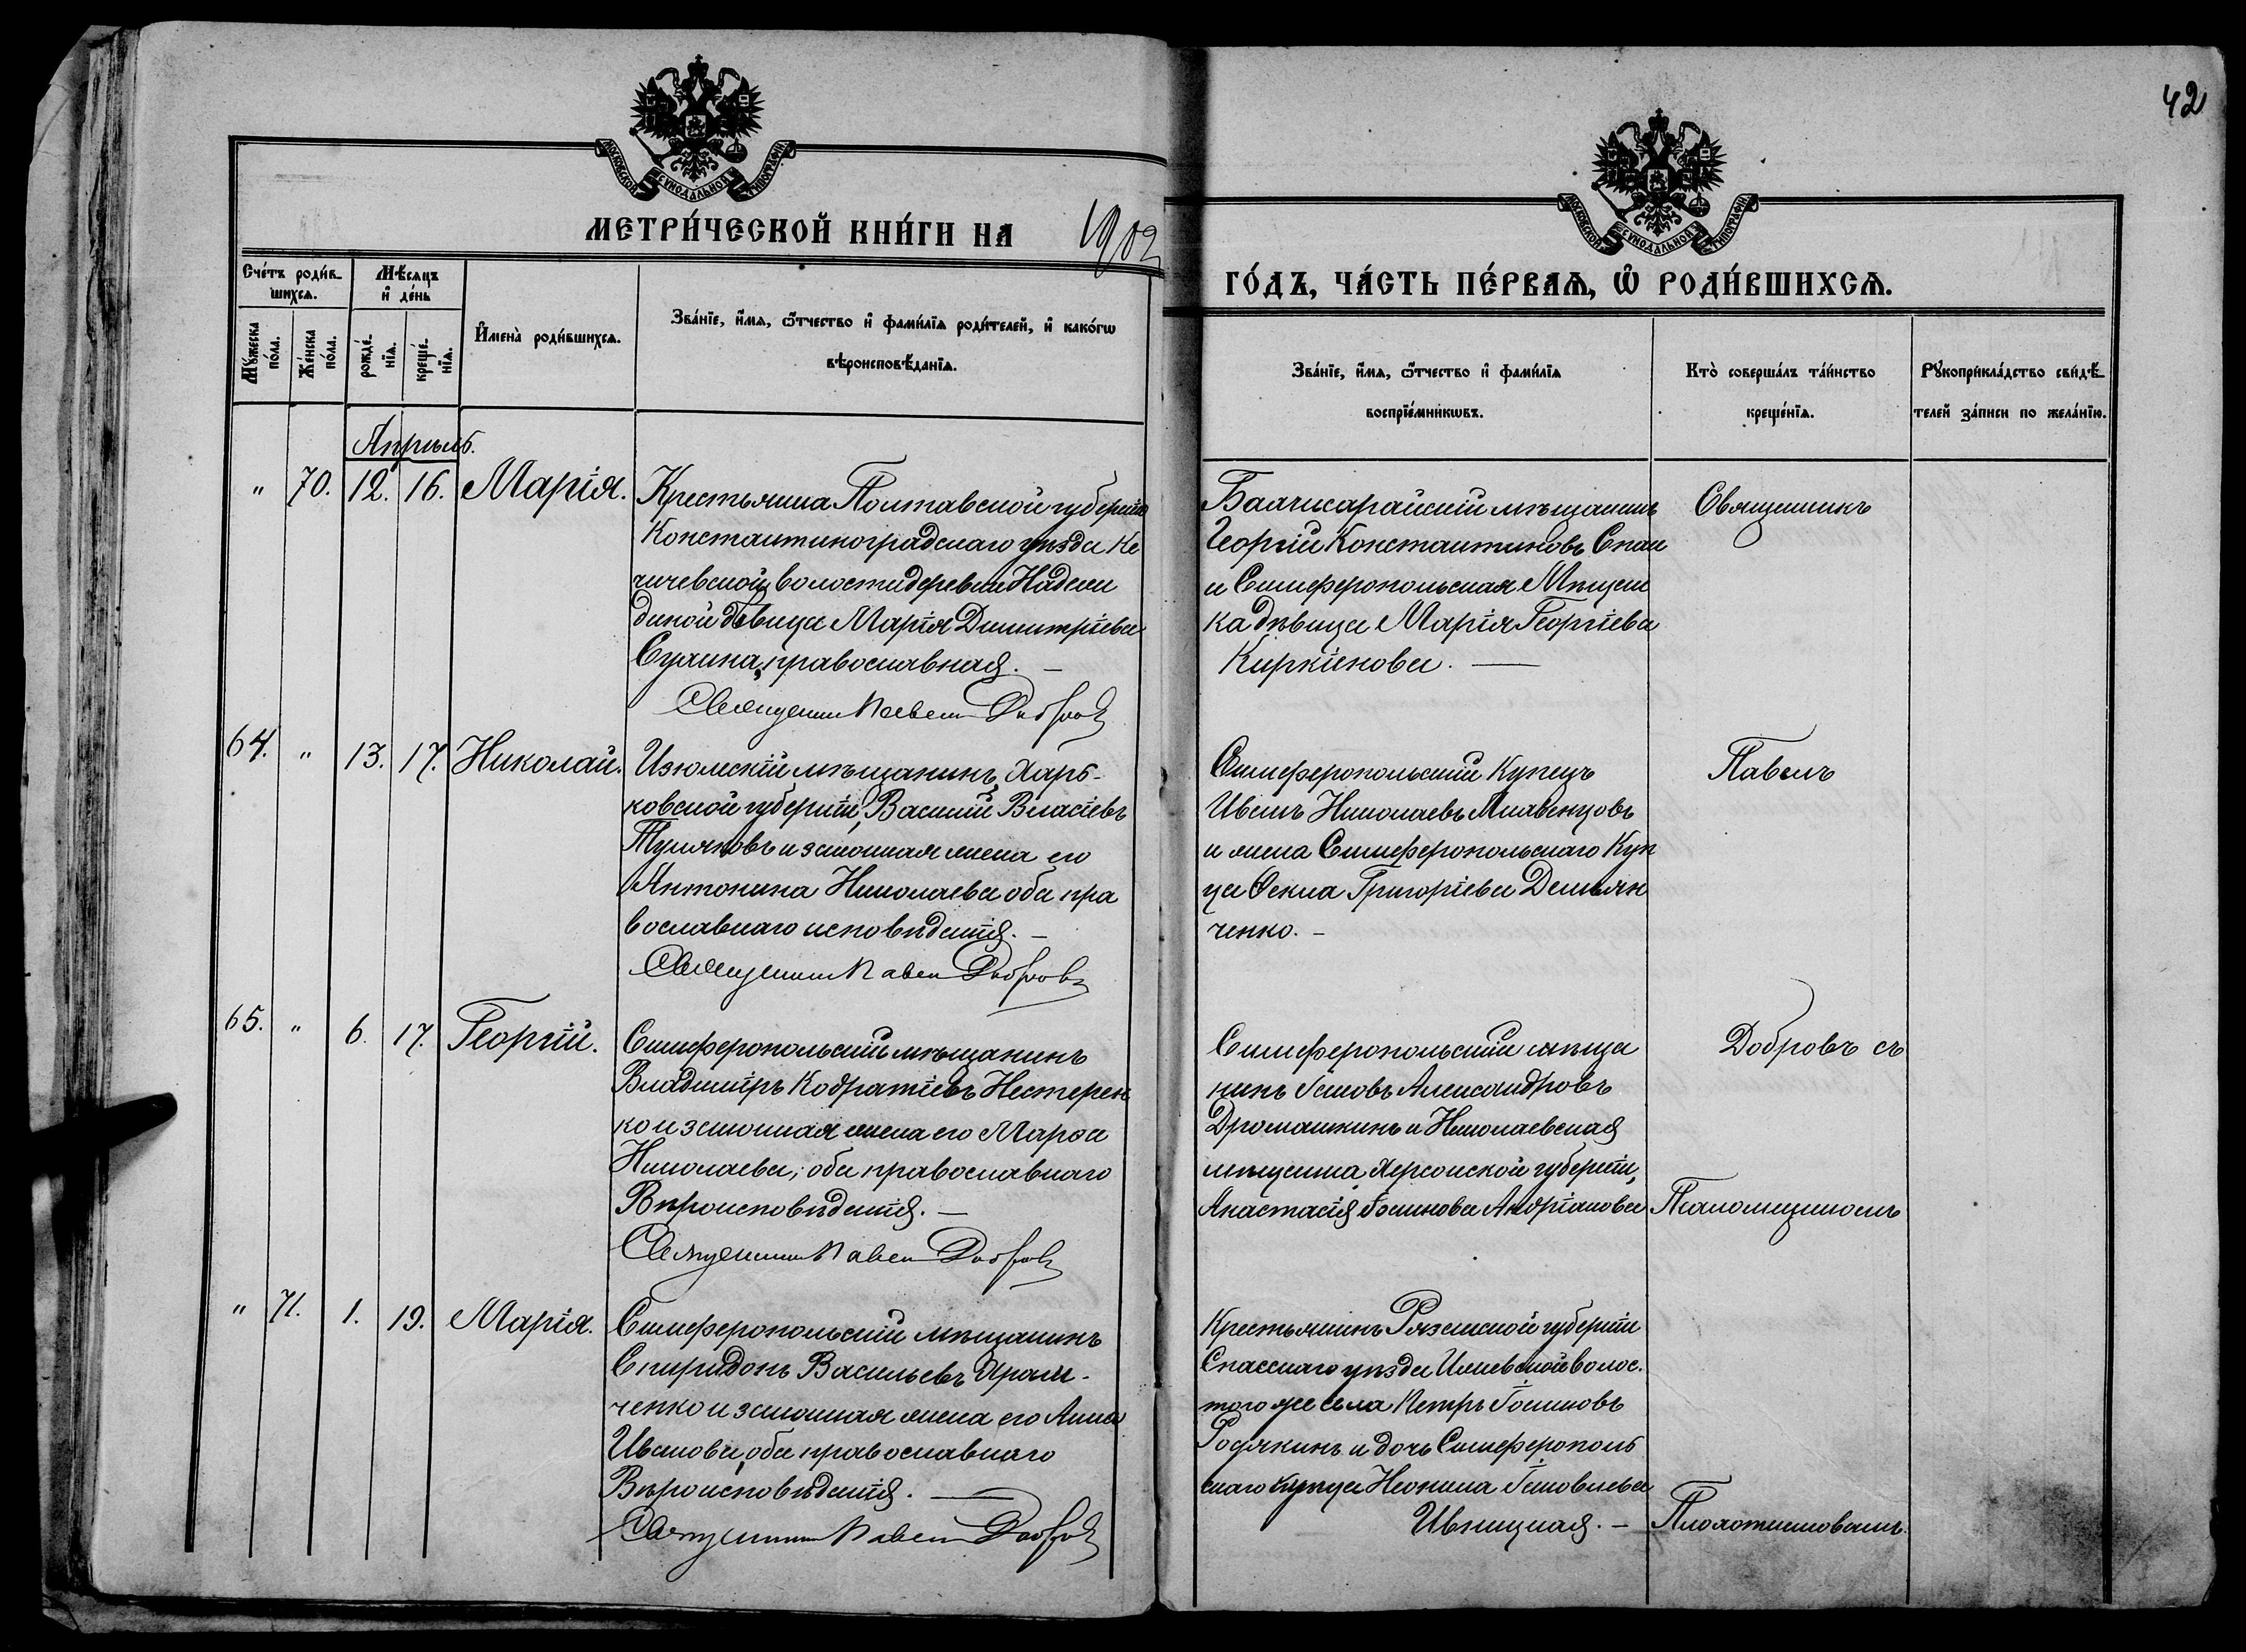 42
МЕТРИ́ЧЕСКОЙ КНИ́ГИ НА 1902
ГО́ДЪ, ЧА́СТЬ ПЕ́РВАѦ, Ѡ҆ РОДИ́ВШИХСѦ.
Сче́тъ роди́в-
шихсѧ.
Мѣ́сѧцъ
и҆ де́нь
Мꙋ́жеска
по́ла.
Же́нска
по́ла.
рожде́-
нїѧ.
креще́-
нїѧ.
И҆мена̀ роди́вшихсѧ.
Зва́нїе, и҆́мѧ, ѻ҆́тчество и҆ фами́лїѧ роди́телей, и҆ како́гѡ
вѣроисповѣ́данїѧ.
Зва́нїе, и҆́мѧ, ѻ҆́тчество и҆ фами́лїѧ
воспрїе́мникѡвъ.
Кто̀ соверша́лъ та́инство
креще́нїѧ.
Рꙋкоприкла́дство свидѣ́-
телей за́писи по жела́нїю.
Апрѣль.
" 70. 12. 16. Марія.
Крестьянка Полтавской губерніи
Константиноградскаго уѣзда Ке
гичевской волости деревни
дѣвица Марія Димитріева
православная. —
Священник Павел Добров
Бахчисарайскій мѣщанинъ
Георгій Константиновъ Спаи
и Симферопольская Мѣщан
ка дѣвица Марія Георгіева
Киркінова. —
Священникъ
64. " 13. 17. Николай.
Изюмскій мѣщанинъ, Харь-
ковской губерніи, Василий Власіевъ
Туляковъ и законная жена его
Антонина Николаева оба пра
вославнаго исповѣданія. —
Священник Павел Добровъ
Симферопольскій Купецъ
Иванъ Николаевъ
и жена Симферопольскаго Куп
ца Ѳекла Григоріева Демьян
ченко. —
Павелъ
65. " 6. 17. Георгій.
Симферопольскій мѣщанинъ
Владиміръ Кодратіевъ Нестерен
ко и законная жена его Марѳа
Николаева, оба православнаго
Вѣроисповѣданія. —
Священник Павел Добров
Симферопольскій мѣща
нинъ Іаковъ Александровъ
Дромашкинъ и Николаевская
мѣщанка, Херсонской губерніи,
Анастасія Іоакимова Андріанова
Добровъ съ
Псаломщикомъ
" 71. 1. 19. Марія.
Симферопольскій мѣщанинъ
Спиридонъ Васильевъ
ченко и законная жена его Анна
Иванова, оба православнаго
Вѣроисповѣданія. —
Священник Павел Добров
Крестьянинъ Рязанской губерніи
Спасскаго уѣзда Ижевской волос.
того же села Петръ Іоакимовъ
Родякинъ и дочь Симферополь
скаго Купца Неонила Іаковлева
Ивницкая. —
Плохотниковымъ.